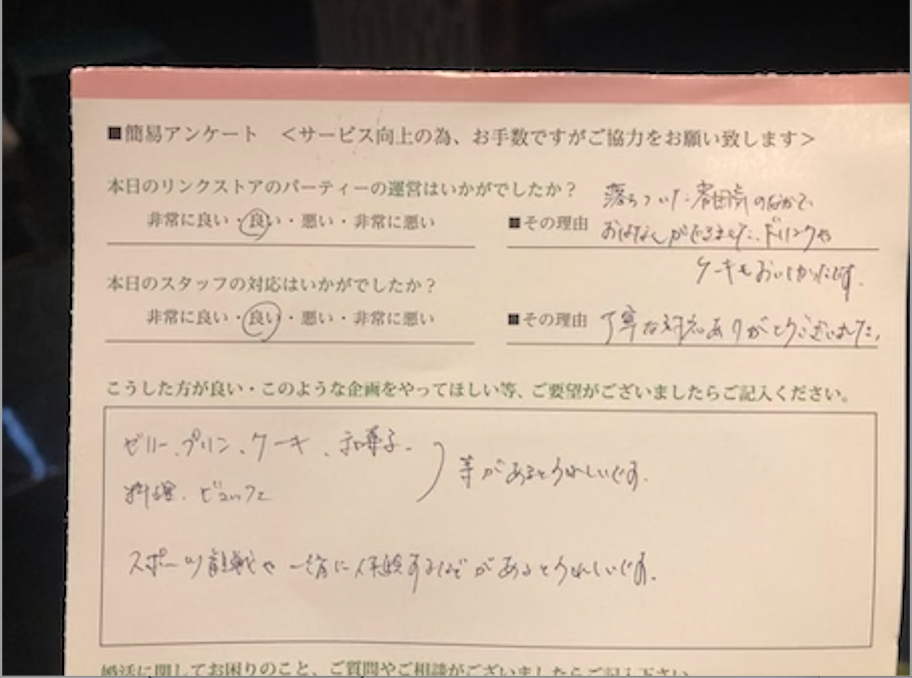 ■簡易アンケート ＜サービス向上の為、お手数ですがご協力をお願い致します＞
本日のリンクストアのパーティーの運営はいかがでしたか？
非常に良い・良い・悪い・非常に悪い
■その理由 落ちついた雰囲気のなかで、
おはなしができました。ドリンクや
ケーキもおいしかったです。
本日のスタッフの対応はいかがでしたか？
非常に良い・良い・悪い・非常に悪い
■その理由 丁寧な対応ありがとうございました。
こうした方が良い・このような企画をやってほしい等、ご要望がございましたらご記入ください。
ゼリー、プリン、ケーキ、和菓子、
料理、ビュッフェ
等があるとうれしいです。
スポーツ観戦や一緒に体験するなどがあるとうれしいです。
婚活に関してお困りのこと、ご質問やご相談がございましたらご記入下さい